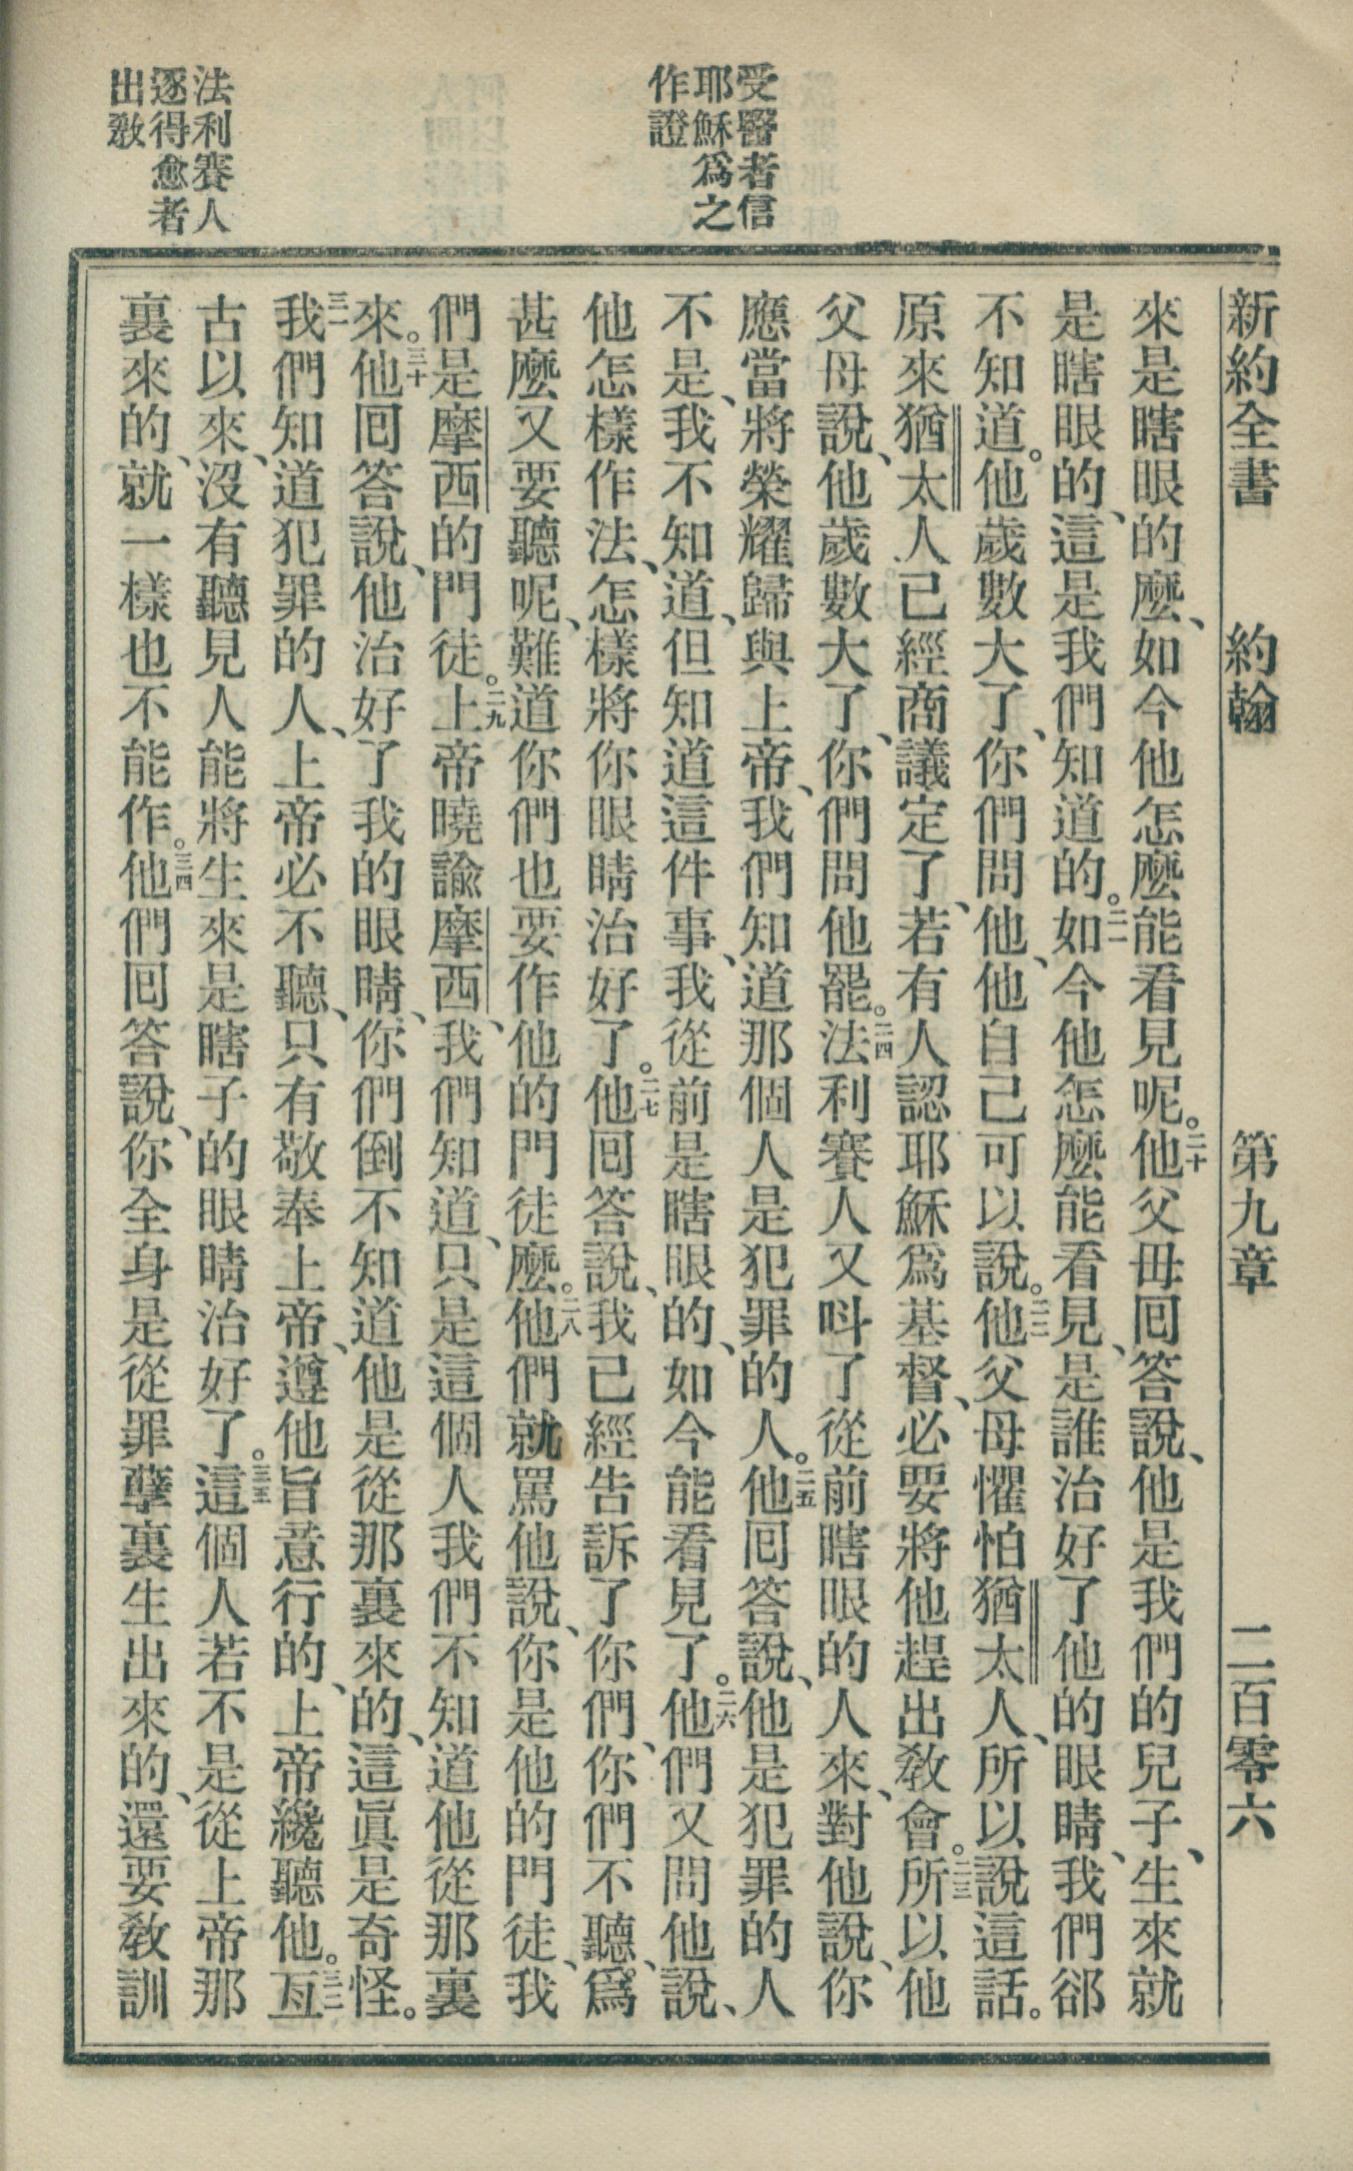 新約全書　約翰　第九章　二百零六
受醫者信
耶穌爲之
作證
法利賽人
逐得愈者
出教
來是瞎眼的麼、如今他怎麼能看見呢。二十他父母回答說、他是我們的兒子、生來就
是瞎眼的、這是我們知道的。二一如今他怎麼能看見、是誰治好了他的眼睛、我們卻
不知道。他歲數大了、你們問他、他自己可以說。二二他父母懼怕猶太人、所以說這話。
原來猶太人已經商議定了、若有人認耶穌爲基督、必要將他趕出教會。二三所以他
父母說、他歲數大了、你們問他罷。二四法利賽人又呌了從前瞎眼的人來、對他說、你
應當將榮耀歸與上帝、我們知道那個人是犯罪的人。二五他回答說、他是犯罪的人
不是、我不知道、但知道這件事、我從前是瞎眼的、如今能看見了。二六他們又問他說、
他怎樣作法、怎樣將你眼睛治好了。二七他回答說、我已經告訴了你們、你們不聽、爲
甚麼又要聽呢、難道你們也要作他的門徒麼。二八他們就罵他說、你是他的門徒、我
們是摩西的門徒。二九上帝曉諭摩西、我們知道、只是這個人我們不知道他從那裏
來。三十他回答說、他治好了我的眼睛、你們倒不知道他是從那裏來的、這眞是奇怪。
三一我們知道犯罪的人、上帝必不聽、只有敬奉上帝、遵他旨意行的、上帝纔聽他。三二亙
古以來、沒有聽見人能將生來是瞎子的眼睛治好了。三三這個人若不是從上帝那
裏來的、就一樣也不能作。三四他們回答說、你全身是從罪孽裏生出來的、還要教訓